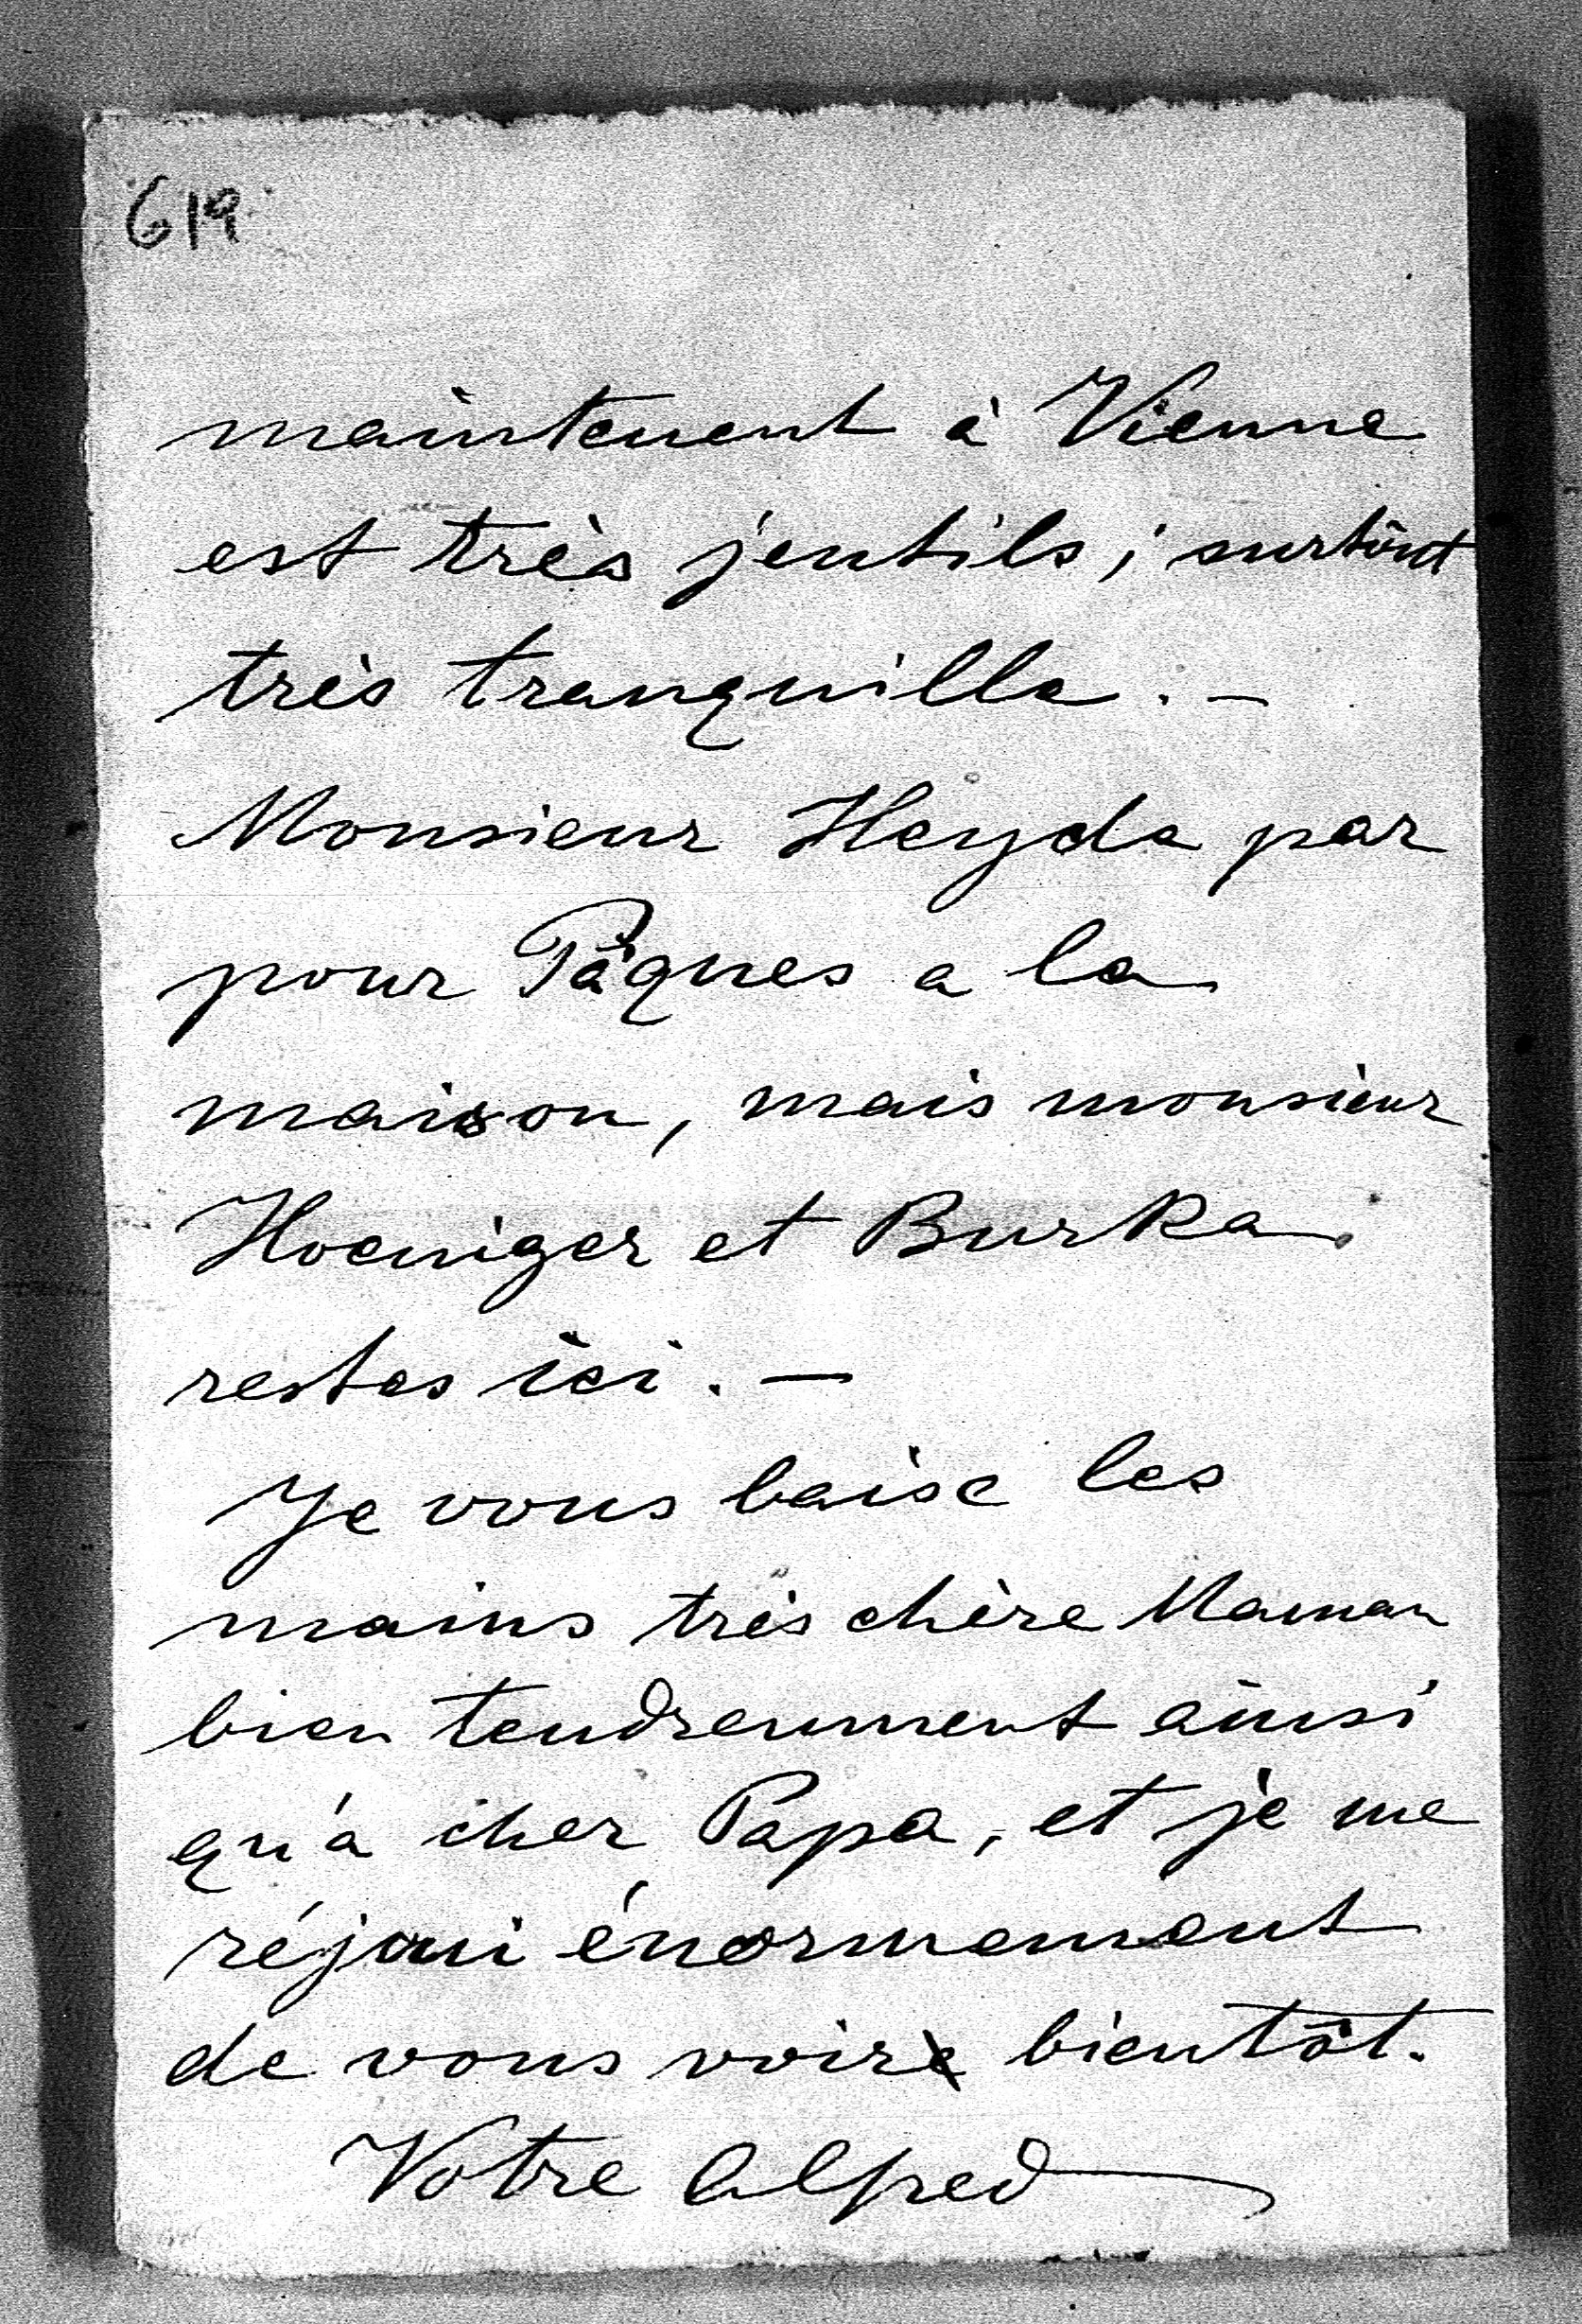 619
maintenent à Vienne
est très jentils; surtôut
très tranquille. —
Monsieur Heyda par
pour Pâques a la
maison, mais monsieur
Hoeniger et Burka
restes ici. —
Je vous baise les
mains très chère Maman
bien tendremment ainsi
qu'a cher Papa, et je me
réjoui énormement
de vous voir bientôt.
Votre Alfred